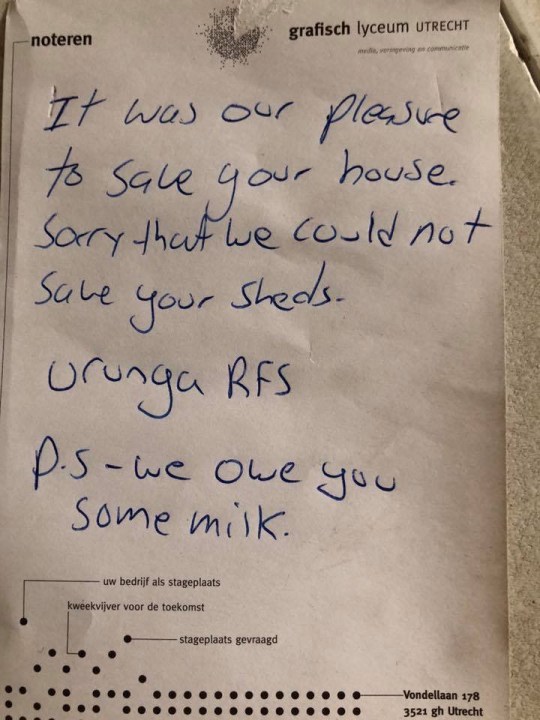 noteren
grafisch lyceum UTRECHT
media, vormgeving en communicatie
It was our pleasure
to save your house.
Sorry that we could not
save your sheds.
Urunga RFS
P.S - we owe you
some milk.
uw bedrijf als stageplaats
kweekvijver voor de toekomst
stageplaats gevraagd
Vondellaan 178
3521 gh Utrecht